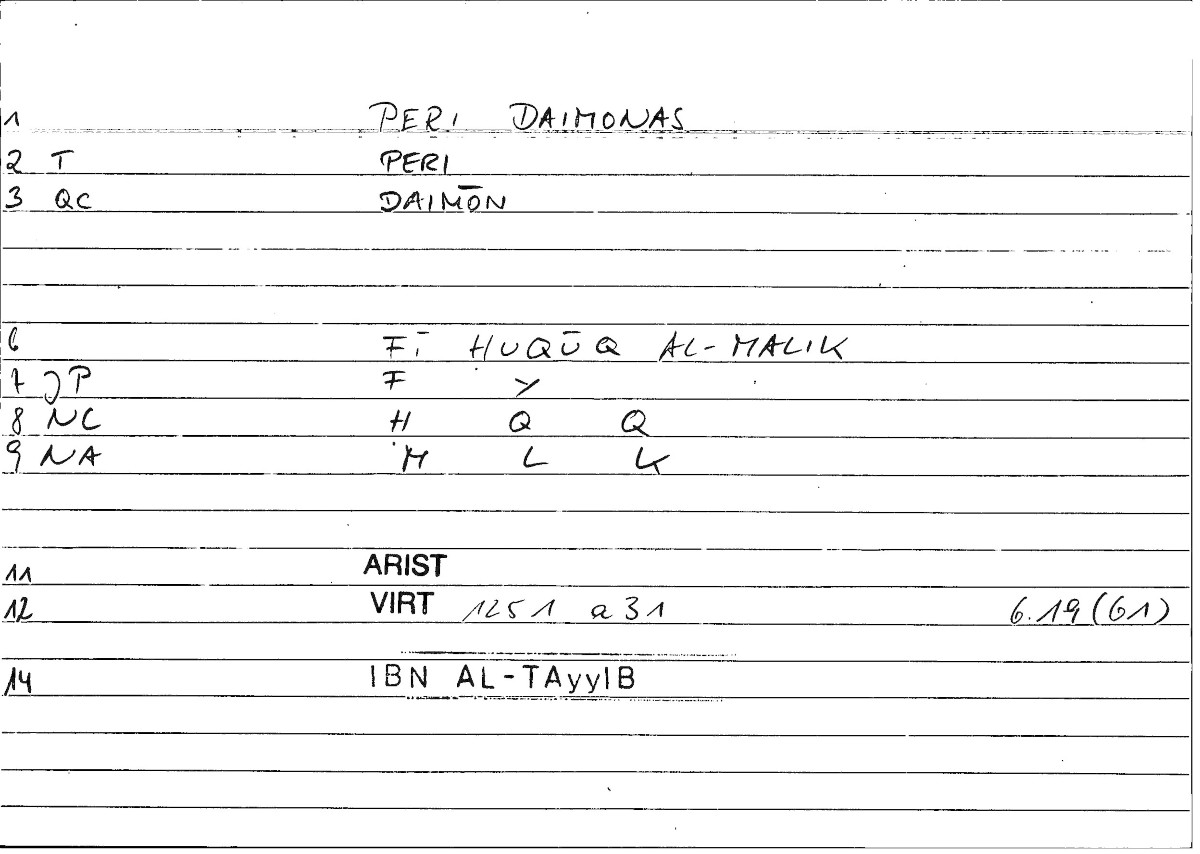 1 PERI DAIMONAS
2 T PERI
3 QC DAIMŌN
6 FĪ ḤUQŪQ AL-MALIK
7 JP F Y
8 NC Ḥ Q Q
9 NA M L K
11 ARIST
12 VIRT 1251 a 31 6.19 (61)
14 IBN AL-TAyyIB